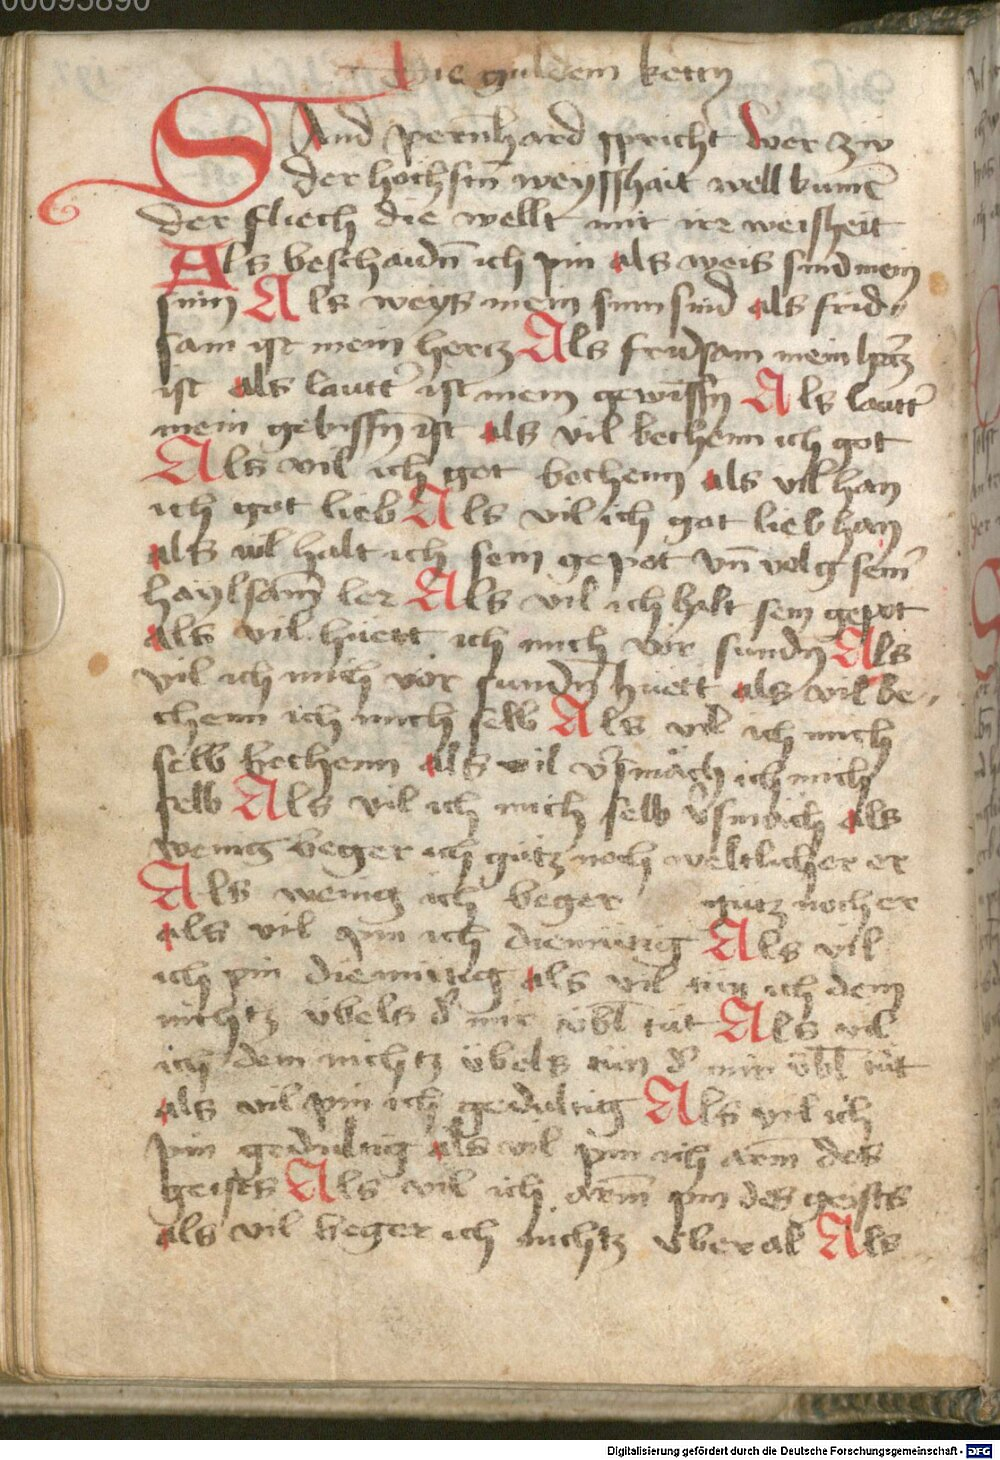 00095890
Die guldein kettn
Sand pernhard spricht wer zw
der höchstn weysshait well kumē
der fliech die wellt mit irr weisheit
Als beschaidn̄ ich pin als weis sind mein
sinn Als weys mein sinn sind als frid„
sam ist mein hertz Als fridsam mein hertz
ist als lautt̄ ist mein gewissn̄ Als lautt̄
mein gebissn̄ ist als vil bechenn ich got
Als vil ich got bechenn als vil han
ich got lieb Als vil ich got lieb han
als vil halt ich sein gepot vn̄ volg sein̄
haylsam̄ ler Als vil ich halt sein gepot
als vil huett ich mich vor sundn̄ Als
vil ich mich vor sundn̄ huett als vil be„
chenn ich mich selb Als vil ich mich
selb bechenn als vil v̄smäch ich mich
selb Als vil ich mich selb v̄smäch als
wenig beger ich gutz noch weltlicher er
Als wenig ich beger gutz noch er
als vil pin ich diemütig Als vil
ich pin diemütig als vil tün ich dem
nichtz übels d̄ mir übl tüt Als vil
ich dem nichtz übels tün d̄ mir übl tüt
als vil pin ich gedultig Als vil ich
pin gedultig als vil pin ich arm̄ des
geists Als vil ich arm̄ pin des geists
als vil beger ich nichtz überal Als
Digitalisierung gefördert durch die Deutsche Forschungsgemeinschaft - DFG